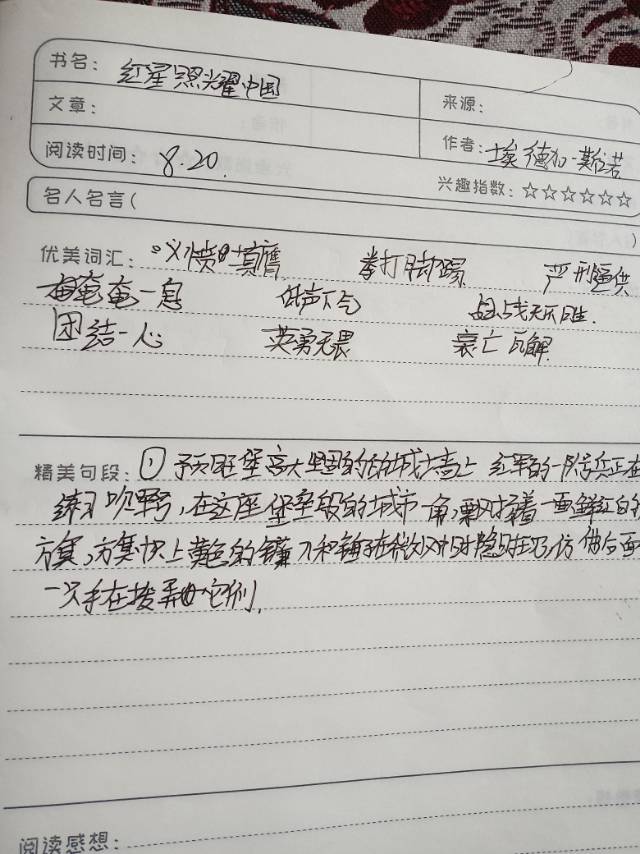 书名: 红星照耀中国
来源:
文章:
作者: 埃德加·斯诺
阅读时间: 8.20.
兴趣指数: ☆☆☆☆☆☆
名人名言( )
优美词汇: 义愤填膺 拳打脚踢 严刑逼供
奄奄一息 低声下气 战无不胜.
团结一心 英勇无畏 衰亡 瓦解
精美句段: ① 预旺堡高大坚固的城墙上 红军的一队号兵正在
练习吹军号,在这座堡垒一般的城市一角,飘扬着一面鲜红的
方旗,方旗上黄色的镰刀和锤子在微风中时隐时现,仿佛后面
一只手在拨弄它们.
阅读感想: